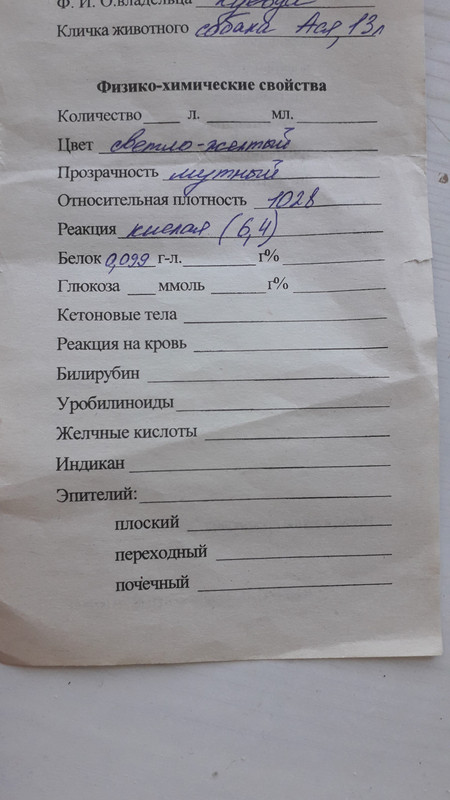 Ф. И. О.владельца
Кличка животного собака Ася, 13л
Физико-химические свойства
Количество____ л. ________мл. __________
Цвет светло-желтый
Прозрачность мутный
Относительная плотность 1028
Реакция кислая (6,4)
Белок 0,099 г-л.________ г% __________
Глюкоза ___ ммоль ______ г% __________
Кетоновые тела
Реакция на кровь
Билирубин
Уробилиноиды
Желчные кислоты
Индикан
Эпителий:
плоский
переходный
почечный